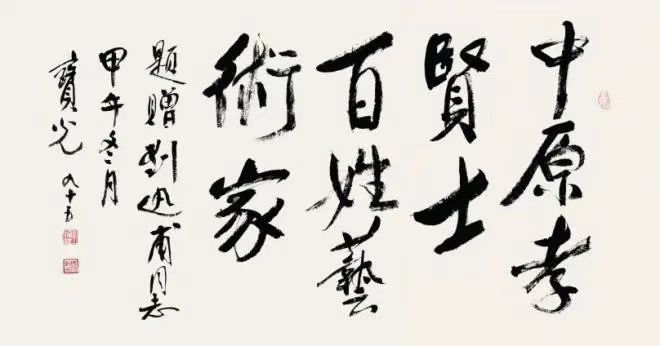 中原孝
賢士
百姓藝
術家
題贈劉迅甫同志
甲午冬月
寶光 九十五